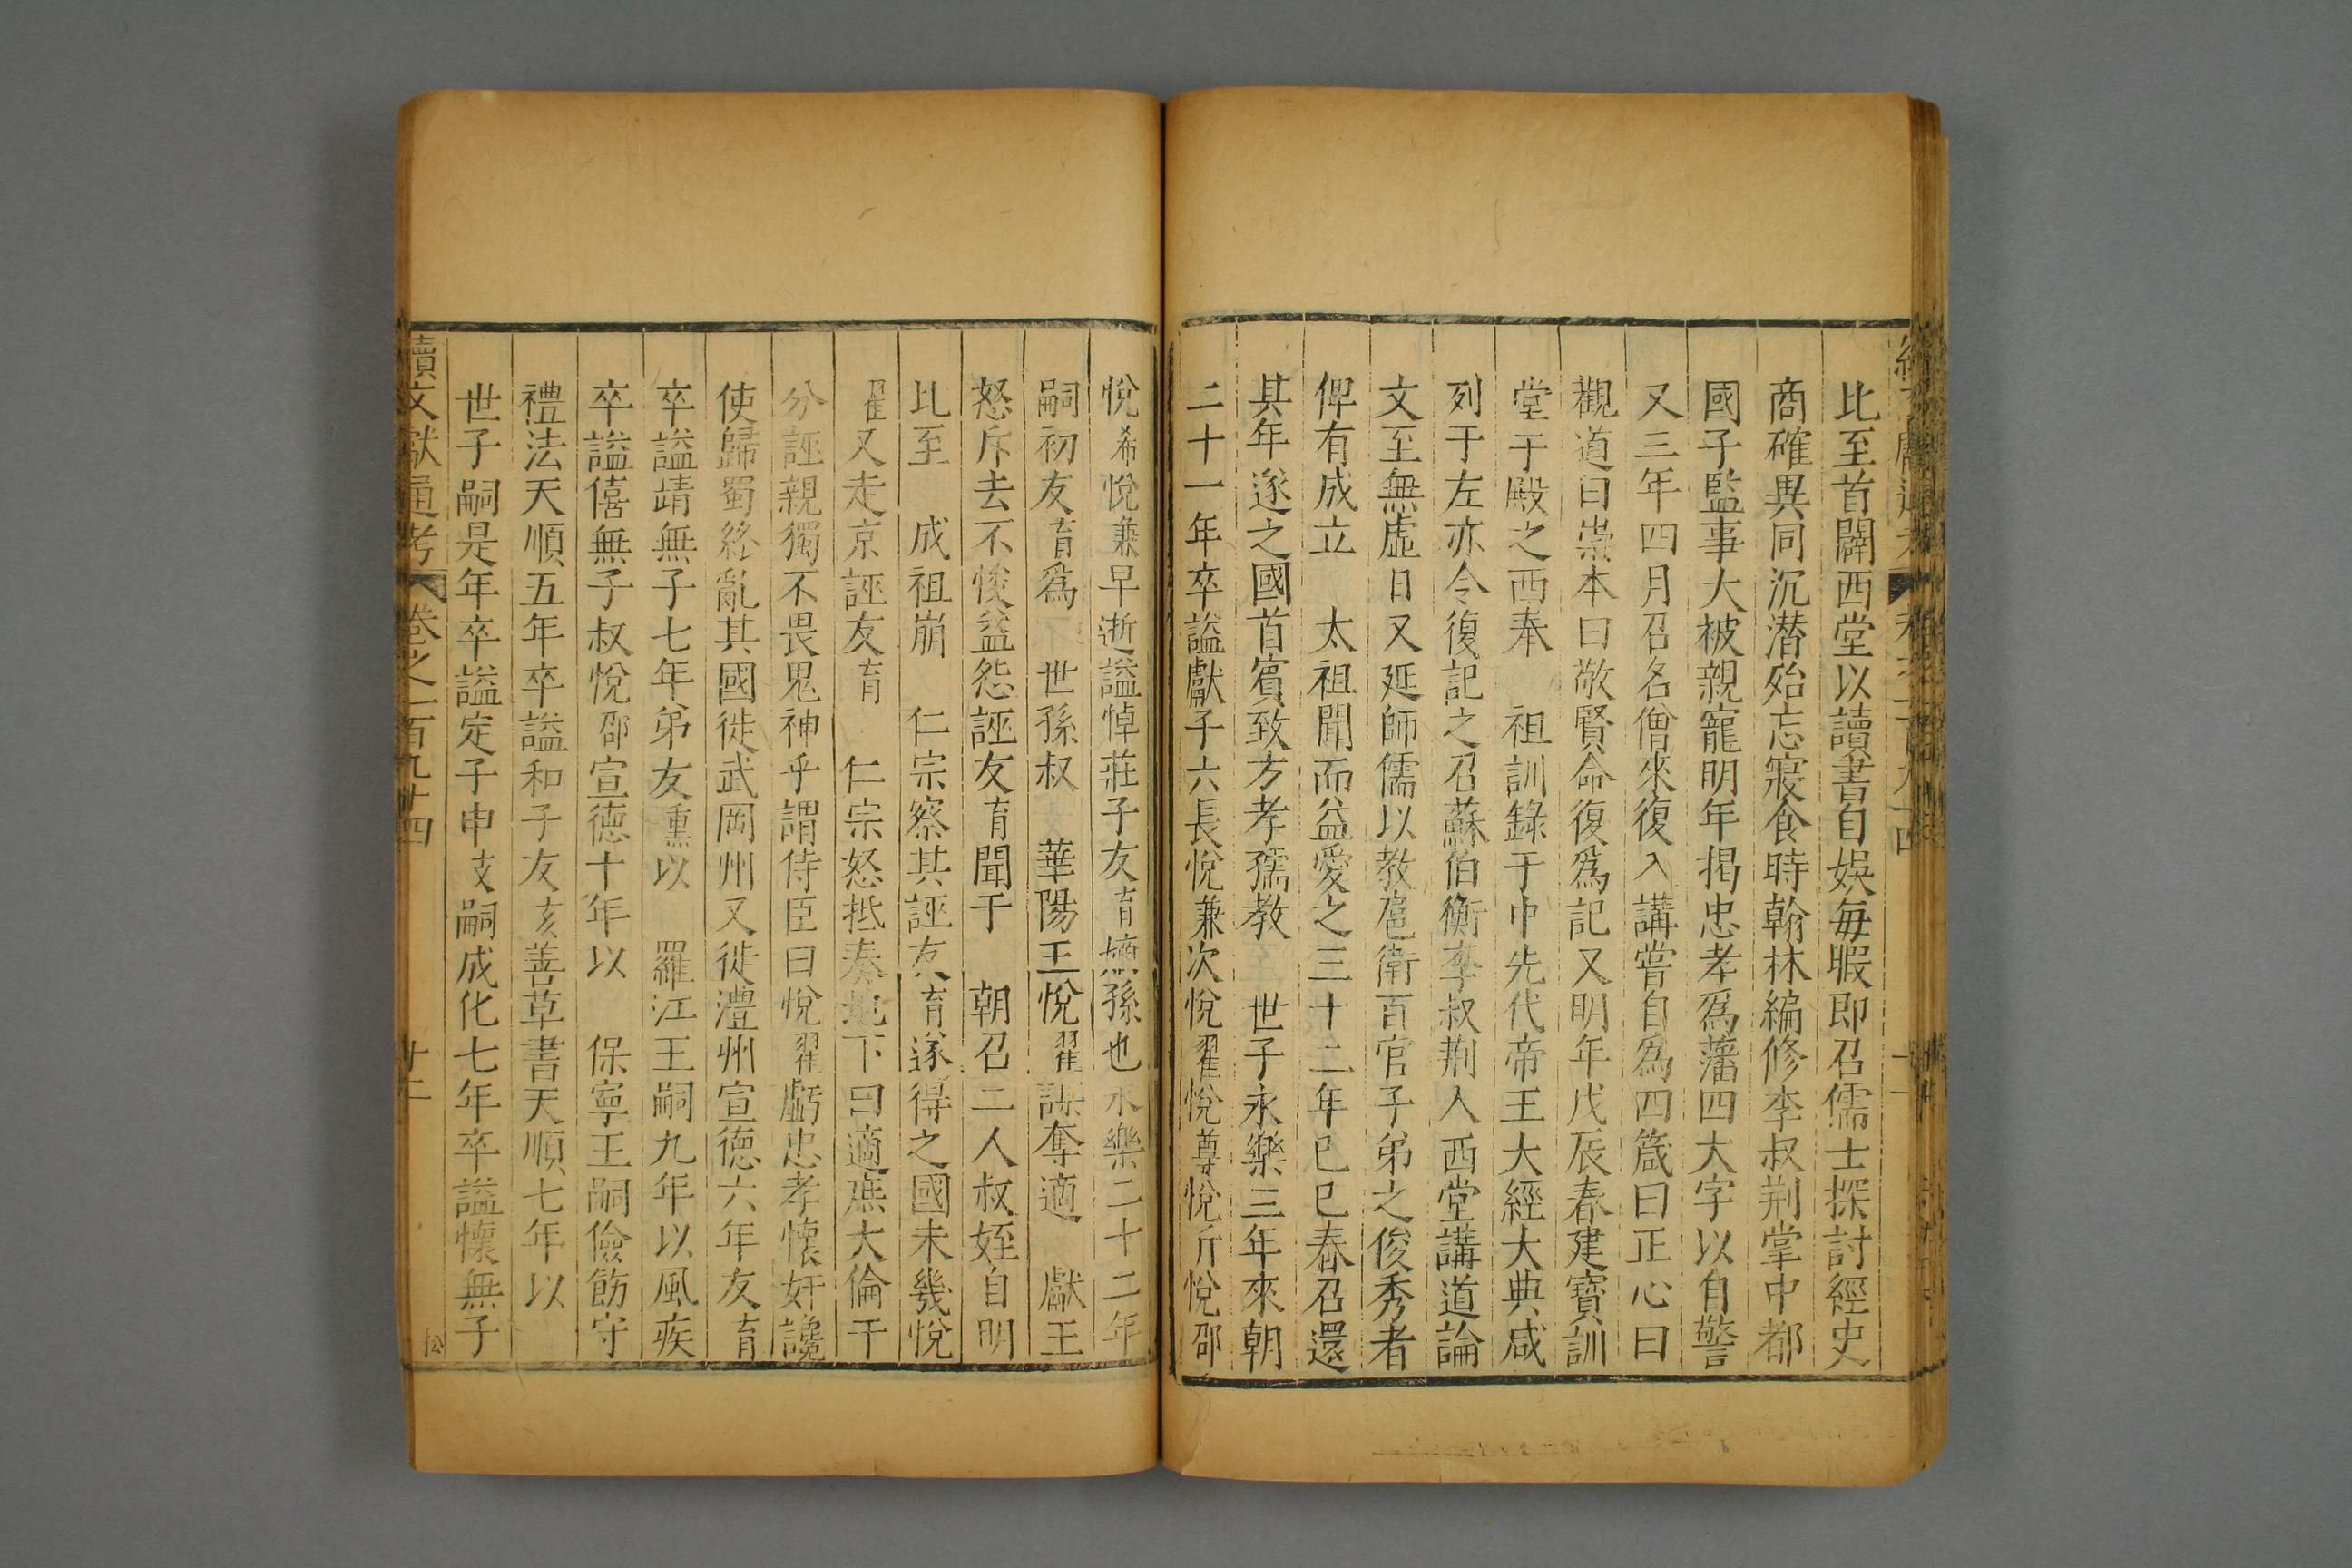 比至首闢西堂以讀書自娛每暇即召儒士探討經史
商確異同沉潜殆忘寢食時翰林編修李叔荆掌中都
國子監事大被親寵明年揭忠孝爲藩四大字以自警
又三年四月召名僧來復入講嘗自爲四箴曰正心曰
觀道曰崇本曰敬賢命復爲記又明年戊辰春建寶訓
堂于殿之西奉　祖訓錄于中先代帝王大經大典咸
列于左亦令復記之召蘇伯衡李叔荆入西堂講道論
文至無虛日又延師儒以教扈衛百官子弟之俊秀者
俾有成立　太祖聞而益愛之三十二年巳巳春召還
其年遂之國首賓致方孝孺教　世子永樂三年來朝
二十一年卒謚獻子六長悅兼次悅翟悅尊悅斤悅邵
悅希悅兼早逝謚悼莊子友育嫡孫也永樂二十二年
嗣初友育爲　世孫叔　華陽王悅翟謀奪適　獻王
怒斥去不悛益怨誣友育聞于　朝召二人叔姪自明
比至　成祖崩　仁宗察其誣友育遂得之國未幾悅
翟又走京誣友育　仁宗怒抵奏地下曰適庶大倫干
分誣親獨不畏鬼神乎謂侍臣曰悅翟虧忠孝懷奸讒
使歸蜀終亂其國徙武岡州又徙澧州宣德六年友育
卒謚靖無子七年弟友壎以　羅江王嗣九年以風疾
卒謚僖無子叔悅邵宣德十年以　保寧王嗣儉飭守
禮法天順五年卒謚和子友垓善草書天順七年以
世子嗣是年卒謚定子申𨩐嗣成化七年卒謚懷無子
續文獻通考　卷之二百九十四　廿二